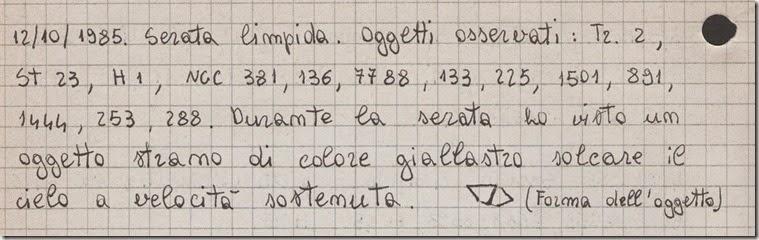 12/10/1985. Serata limpida. Oggetti osservati: Tr. 2,
St 23, H 1, NGC 381, 136, 7788, 133, 225, 1501, 891,
1444, 253, 288. Durante la serata ho visto un
oggetto strano di colore giallastro solcare il
cielo a velocità sostenuta. (Forma dell'oggetto)